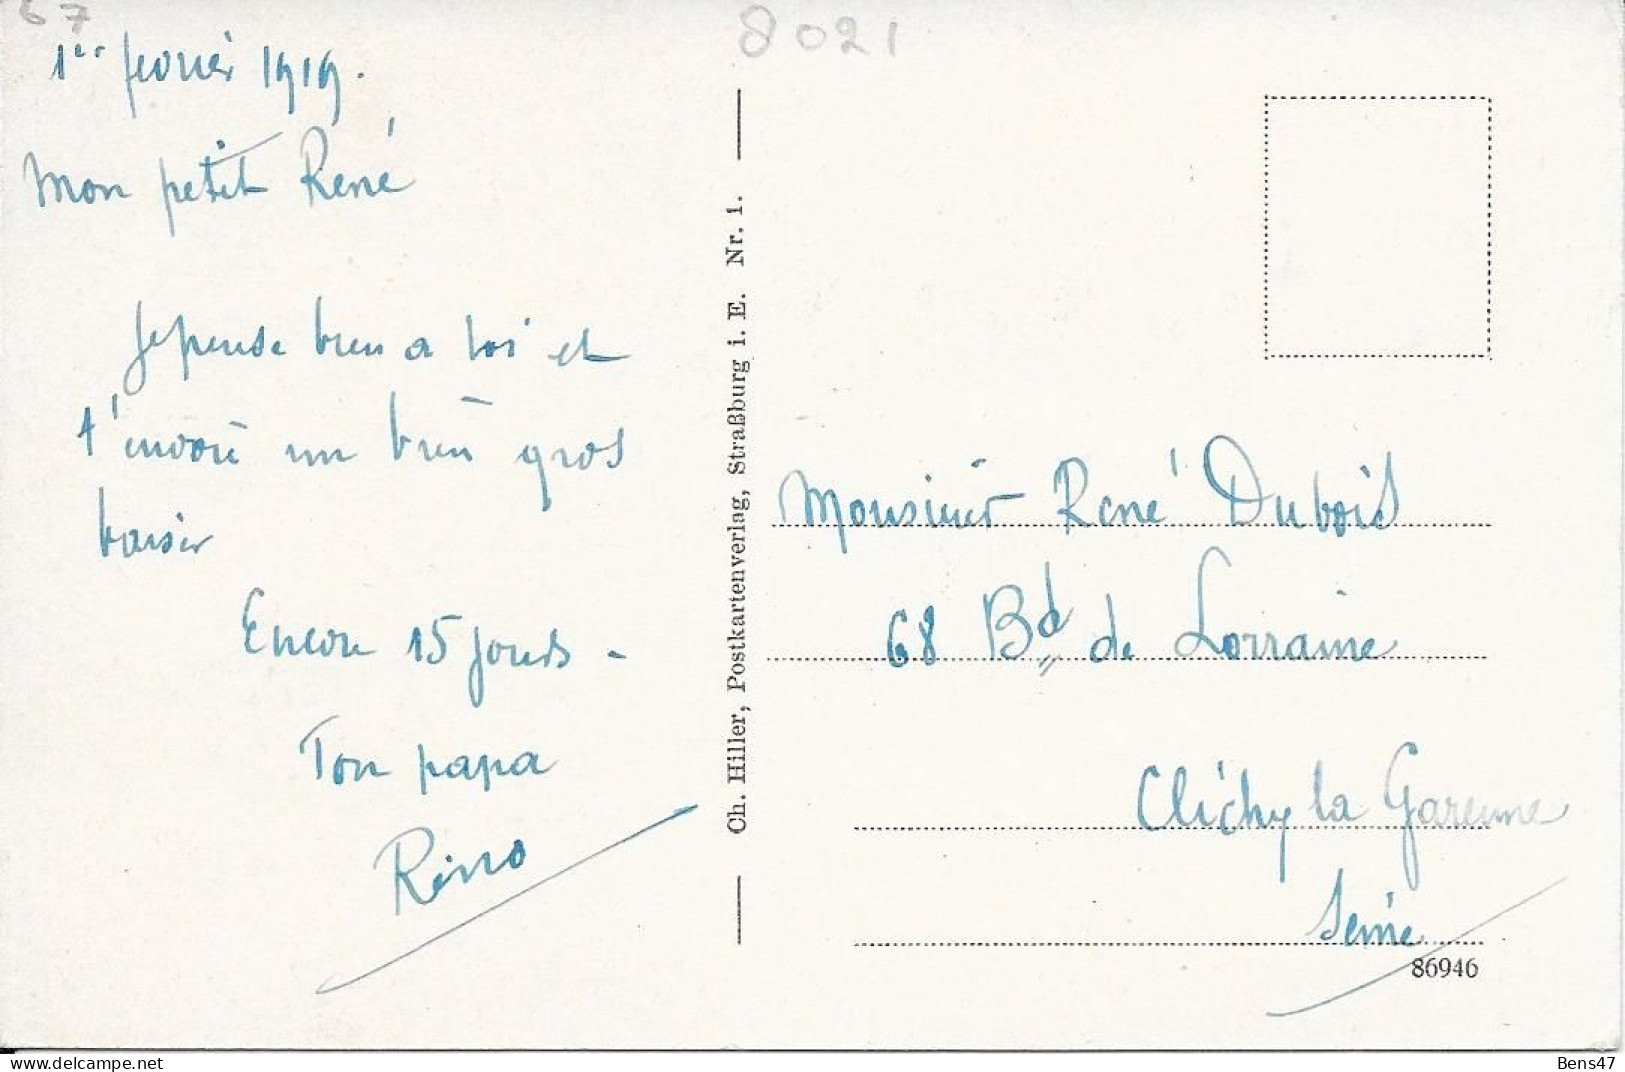 67
8021
1er fevrier 1919.
Mon petit René
Je pense bien a toi et
t'envoie un bien gros
baiser
Encore 15 jours -
Ton papa
Ch. Hiller, Postkartenverlag, Straßburg i. E. Nr. 1.
Monsieur René Dubois
68 Bd de Lorraine
Clichy la Garenne
Seine
86946
Bens47